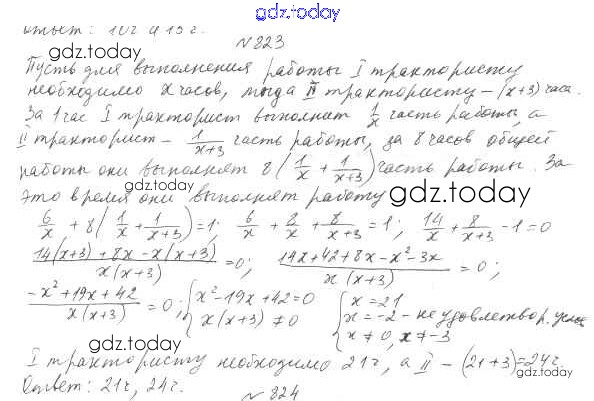 gdz.today
ответ: 10г и 15г.
gdz.today
№823
Пусть для выполнения работы I трактористу
необходимо x часов, тогда II трактористу – (x+3) часа.
За 1 час I тракторист выполнит 1/x часть работы, а
II тракторист – 1/(x+3) часть работы, за 8 часов общей
работы они выполнят 8(1/x + 1/(x+3)) часть работы. За
gdz.today
это время они выполнят работу
gdz.today
6/x + 8(1/x + 1/(x+3)) = 1; 6/x + 2/x + 8/(x+3) = 1; 14/x + 8/(x+3) - 1 = 0
(14(x+3) + 8x - x(x+3))/(x(x+3)) = 0; (14x + 42 + 8x - x² - 3x)/(x(x+3)) = 0;
(-x² + 19x + 42)/(x(x+3)) = 0; { x² - 19x + 42 = 0 { x = 21
x(x+3) ≠ 0 x = -2 - не удовлетвор. услов
x ≠ 0, x ≠ -3
gdz.today
I трактористу необходимо 21г, а II – (21+3)=24г.
Ответ: 21г, 24г.
gdz.today
№824